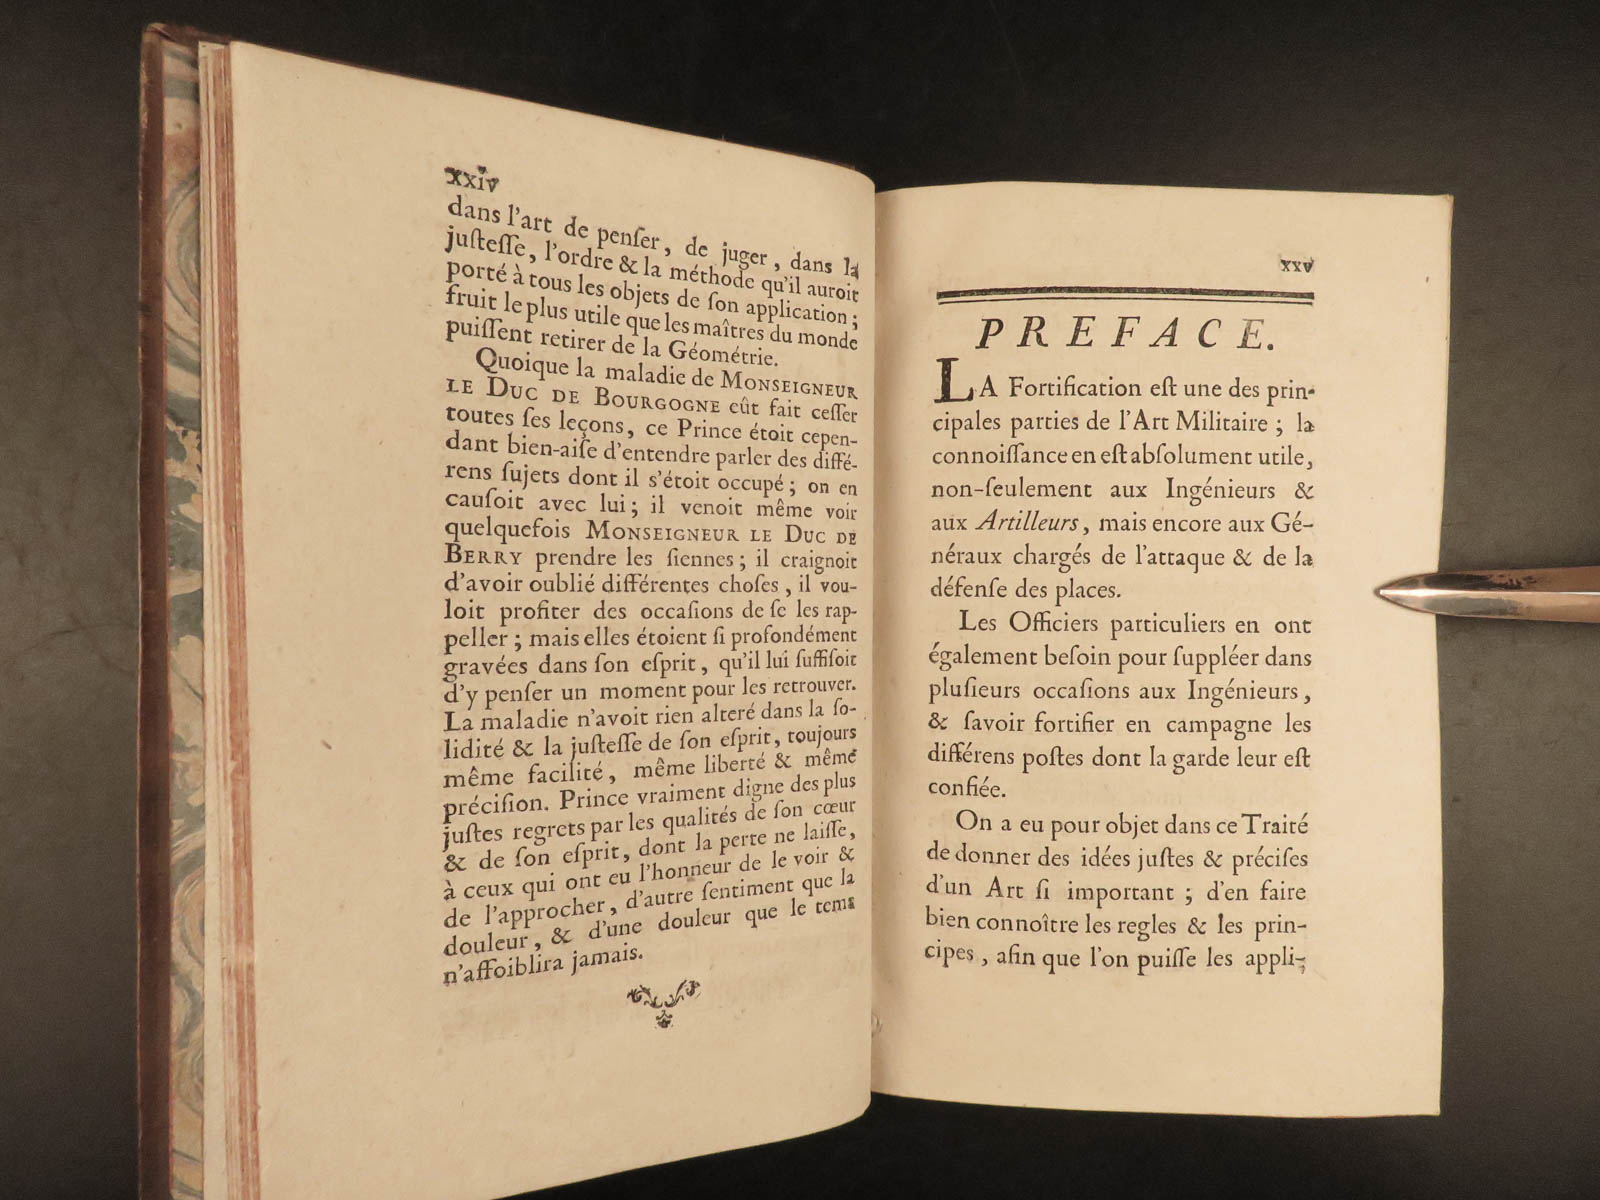 xxiv
dans l'art de penſer, de juger, dans la
juſteſſe, l'ordre & la méthode qu'il auroit
porté à tous les objets de ſon application;
fruit le plus utile que les maîtres du monde
puiſſent retirer de la Géométrie.
Quoique la maladie de MONSEIGNEUR
LE DUC DE BOURGOGNE eût fait ceſſer
toutes ſes leçons, ce Prince étoit cepen-
dant bien-aiſe d'entendre parler des diffé-
rens ſujets dont il s'étoit occupé; on en
cauſoit avec lui; il venoit même voir
quelquefois MONSEIGNEUR LE DUC DE
BERRY prendre les ſiennes; il craignoit
d'avoir oublié différentes choſes, il vou-
loit profiter des occaſions de ſe les rap-
peller; mais elles étoient ſi profondément
gravées dans ſon eſprit, qu'il lui ſuffiſoit
d'y penſer un moment pour les retrouver.
La maladie n'avoit rien altéré dans la ſo-
lidité & la juſteſſe de ſon eſprit, toujours
même facilité, même liberté & même
préciſion. Prince vraiment digne des plus
juſtes regrets par les qualités de ſon cœur
& de ſon eſprit, dont la perte ne laiſſe,
à ceux qui ont eu l'honneur de le voir &
de l'approcher, d'autre ſentiment que la
douleur, & d'une douleur que le tems
n'affoiblira jamais.
xxv
PREFACE.
LA Fortification eſt une des prin-
cipales parties de l'Art Militaire; la
connoiſſance en eſt abſolument utile,
non-ſeulement aux Ingénieurs &
aux Artilleurs, mais encore aux Gé-
néraux chargés de l'attaque & de la
défenſe des places.
Les Officiers particuliers en ont
également beſoin pour ſuppléer dans
pluſieurs occaſions aux Ingénieurs,
& ſavoir fortifier en campagne les
différens poſtes dont la garde leur eſt
confiée.
On a eu pour objet dans ce Traité
de donner des idées juſtes & préciſes
d'un Art ſi important; d'en faire
bien connoître les regles & les prin-
cipes, afin que l'on puiſſe les appli-